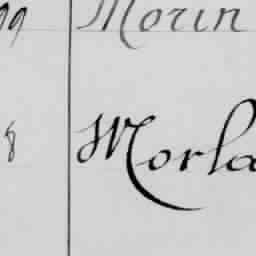 99 Morin
8 Morla